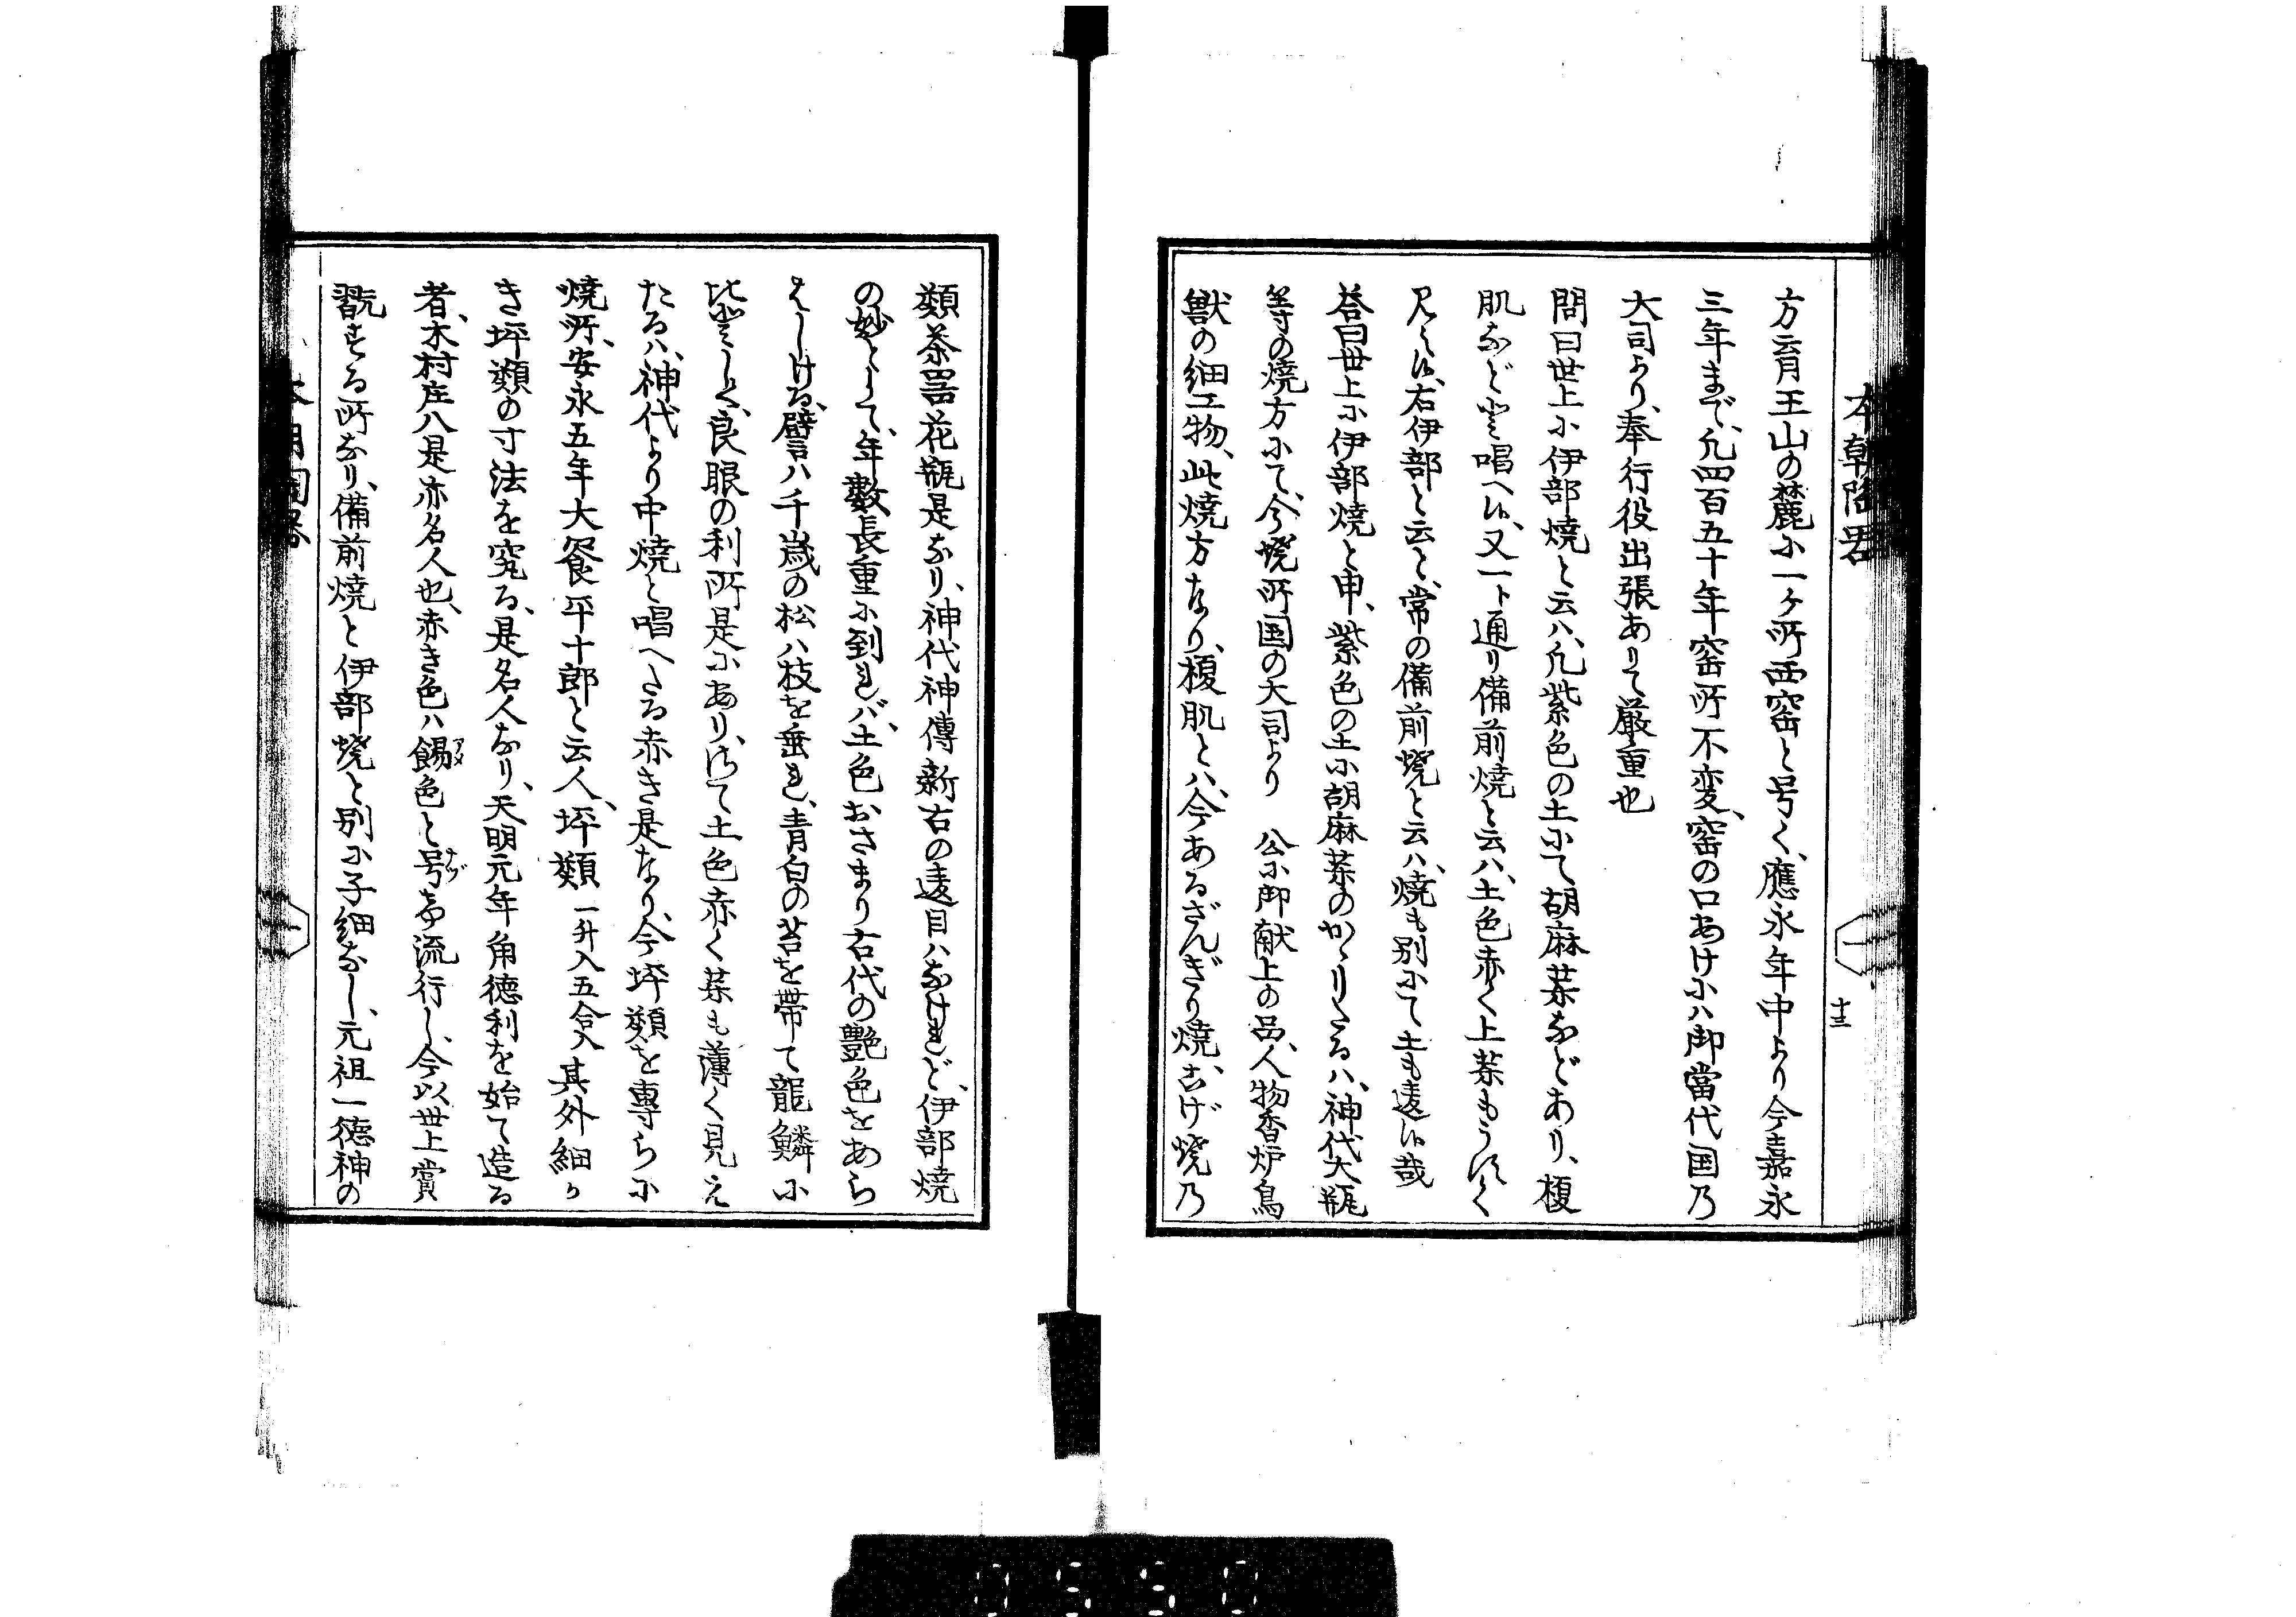 本朝陶器
十三
方育王山の麓小一ヶ所西窑と号く、應永年中より今嘉永
三年まで、凡四百五十年窑所不変、窑の口あけ小ハ御當代国乃
大司より、奉行役出張ありて厳重也
問曰世上小伊部焼と云ハ、凡紫色の土小て胡麻葉などあり、榎
肌など唱へ候、又一ト通リ備前焼と云ハ、土色赤く上葉もうすく
見え候、右伊部と云と、常の備前焼と云ハ、焼も別小て土も違候哉
荅曰世上小伊部焼と申、紫色の土小胡麻葉のかゝりたるハ、神代大瓶
等の焼方小て、今焼所国の大司より　公小御献上の品、人物香炉鳥
獣の細工物、此焼方なり、榎肌と八、今あるざんぎり焼、こげ焼乃
類茶器花瓶是なり、神代神傳新古の違目ハなけれど、伊部焼
の妙として、年數長重小到れバ、土色おさまり古代の艶色をあら
はしける、譬ハ千歳の松ハ枝を垂れ、青白の苔を帯て龍鱗小
比としく、良眼の利所是小あり、はて土色赤く葉も薄く見え
たるハ、神代より中焼と唱へたる赤き是なり、今坪類を專ら小
焼所、安永五年大饗平十郎と云人、坪類 一升入五合入 其外細か
き坪類の寸法を究る、是名人なり、天明元年角徳利を始て造る
者、木村庄八是亦名人也、赤き色ハ餳色と号 流行し、今以世上賞
翫する所なり、備前焼と伊部焼と別小子細なし、元祖一徳神の